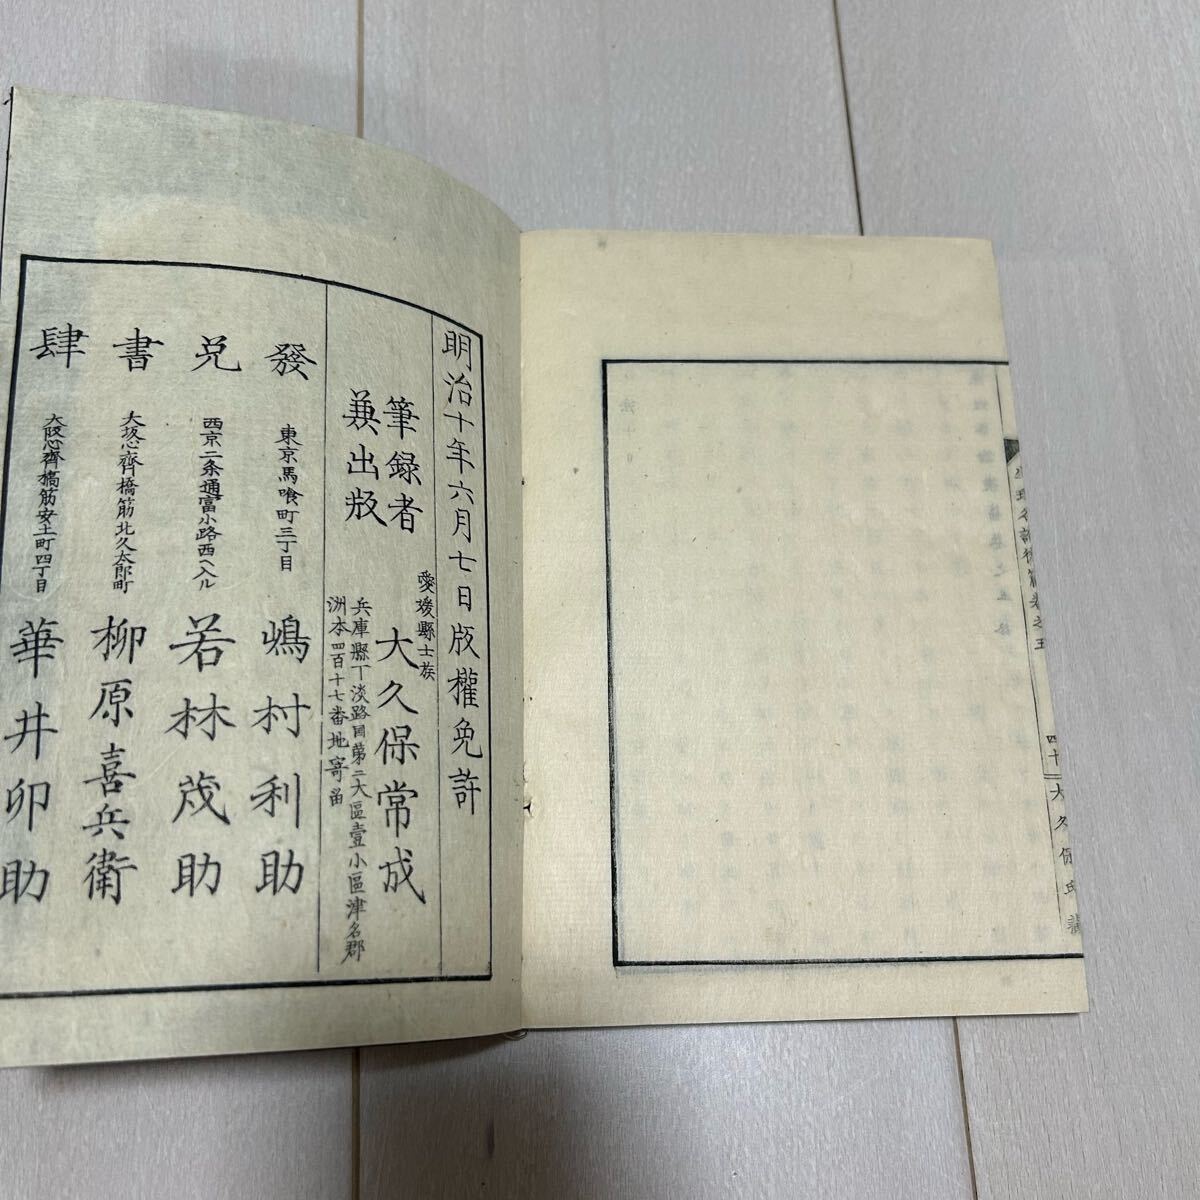 生理各論後篇卷之五
四十
大久保氏藏
明治十年六月七日版權免許
筆録者
兼出版
愛媛縣士族
大久保常成
兵庫縣下淡路國第二大區壹小區津名郡
洲本四百十七番地寄留
發兌書肆
東京馬喰町三丁目
嶋村利助
西京二条通富小路西ヘ入ル
若林茂助
大坂心齊橋筋北久太郎町
柳原喜兵衛
大阪心齊橋筋安土町四丁目
華井卯助